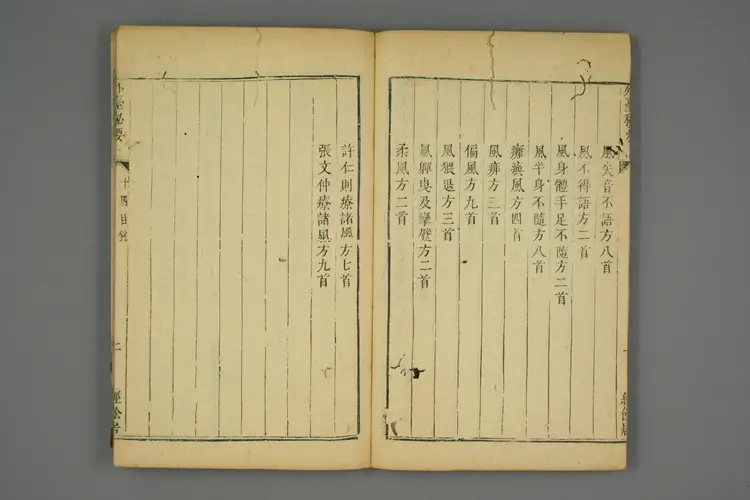 風失音不語方八首
風不得語方二首
風身體手足不隨方二首
風半身不隨方八首
癱瘓風方四首
風痱方三首
風猥退方三首
偏風方九首
風軃曳及攣躄方二首
柔風方二首
許仁則療諸風方七首
張文仲療諸風方九首
外臺秘要
十四目錄
二
經餘居